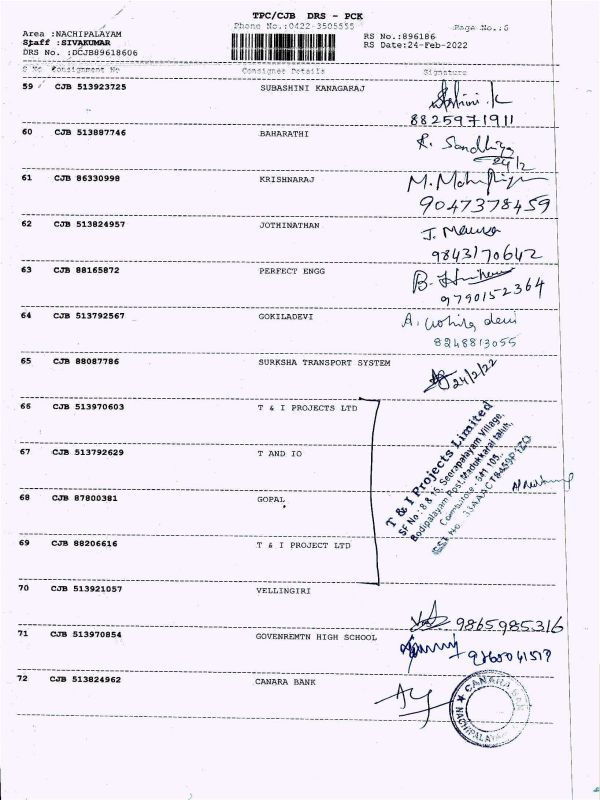 TPC/CJB DRS - PCK
Phone No.:0422-3505555
Page No.:6
Area :NACHIPALAYAM
RS No.:896186
Staff :SIVAKUMAR
RS Date:24-Feb-2022
DRS No. :DCJB89618606
S No Consignment No Consignee Details Signature
59 CJB 513923725 SUBASHINI KANAGARAJ
8825971911
60 CJB 513887746 BAHARATHI R. Sandhiya
24/2
61 CJB 86330998 KRISHNARAJ
9047378459
62 CJB 513824957 JOTHINATHAN
9843170642
63 CJB 88165872 PERFECT ENGG
9790152364
64 CJB 513792567 GOKILADEVI A. Gohila devi
8248813055
65 CJB 88087786 SURKSHA TRANSPORT SYSTEM
24/2/22
66 CJB 513970603 T & I PROJECTS LTD
67 CJB 513792629 T AND IO
68 CJB 87800381 GOPAL
69 CJB 88206616 T & I PROJECT LTD
T & I Projects Limited
SF No : 8 & 16, Seerapalayam Village,
Bodipalayam Post, Madukkarai taluk,
Coimbatore - 641 105.
GST No : 33AAACT8459P1ZQ
70 CJB 513921057 VELLINGIRI
9865985316
71 CJB 513970854 GOVENREMTN HIGH SCHOOL
72 CJB 513824962 CANARA BANK
CANARA BANK
NACHIPALAYAM